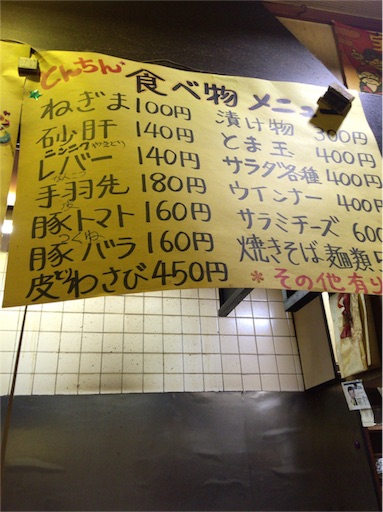 とんちん 食べ物メニュー
ねぎま 100円
砂肝 140円
ニンニク
レバー 140円
手羽先 180円
豚トマト 160円
つくね
豚バラ 160円
皮わさび 450円
漬け物 300円
とま玉 400円
サラダ各種 400円
ウインナー 400円
サラミチーズ 600
焼きそば麺類
*その他有り